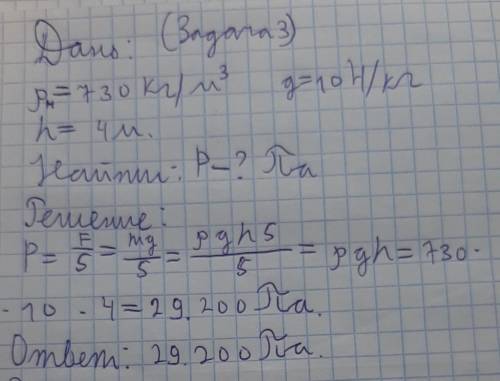 Дано: (Задача 3)
ρн=730 кг/м³ g=10Н/кг
h= 4м.
Найти: P-? Па
Решение:
P= F/S = mg/S = ρghS/S = ρgh=730·
·10 · 4=29.200Па.
Ответ: 29.200Па.